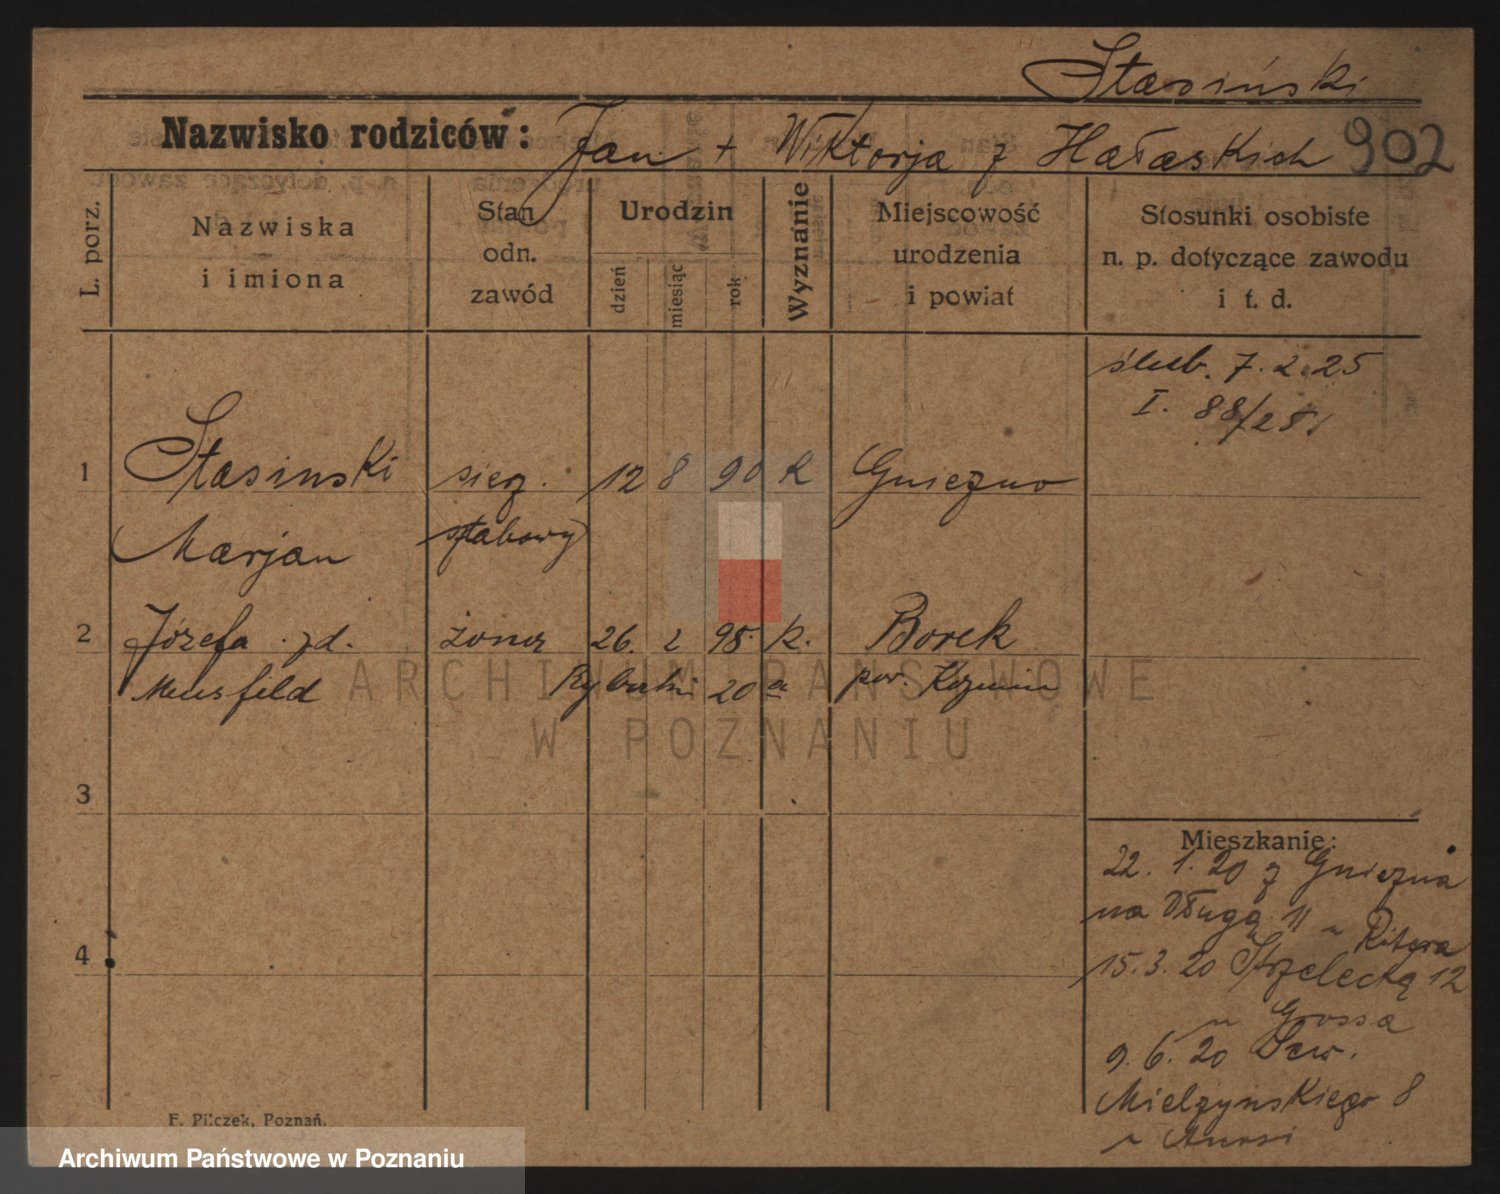 Stasiński
Nazwisko rodziców: Jan + Wiktorja z Hałaskich 902
L. porz.
Nazwiska
i imiona
Stan
odn.
zawód
Urodzin
dzień
miesiąc
rok
Wyznanie
Miejscowość
urodzenia
i powiat
Stosunki osobiste
n. p. dotyczące zawodu
i t. d.
ślub. 7.2.25
I. 88/25
1 Stasinski sierż. 12 8 90 k Gniezno
Marjan sztabowy
2 Józefa zd. żona 26. 2 95. k. Borek
20 pow. Kozmin
3
4
Mieszkanie:
22. 1. 20 z Gniezna
na Długą 11 u Ritera
15.3.20 Strzelecką 12
u Grossa
9.6.20 Sew.
Mielzynskiego 8
u
F. Pilczek, Poznań.
ARCHIWUM PAŃSTWOWE
W POZNANIU
Archiwum Państwowe w Poznaniu